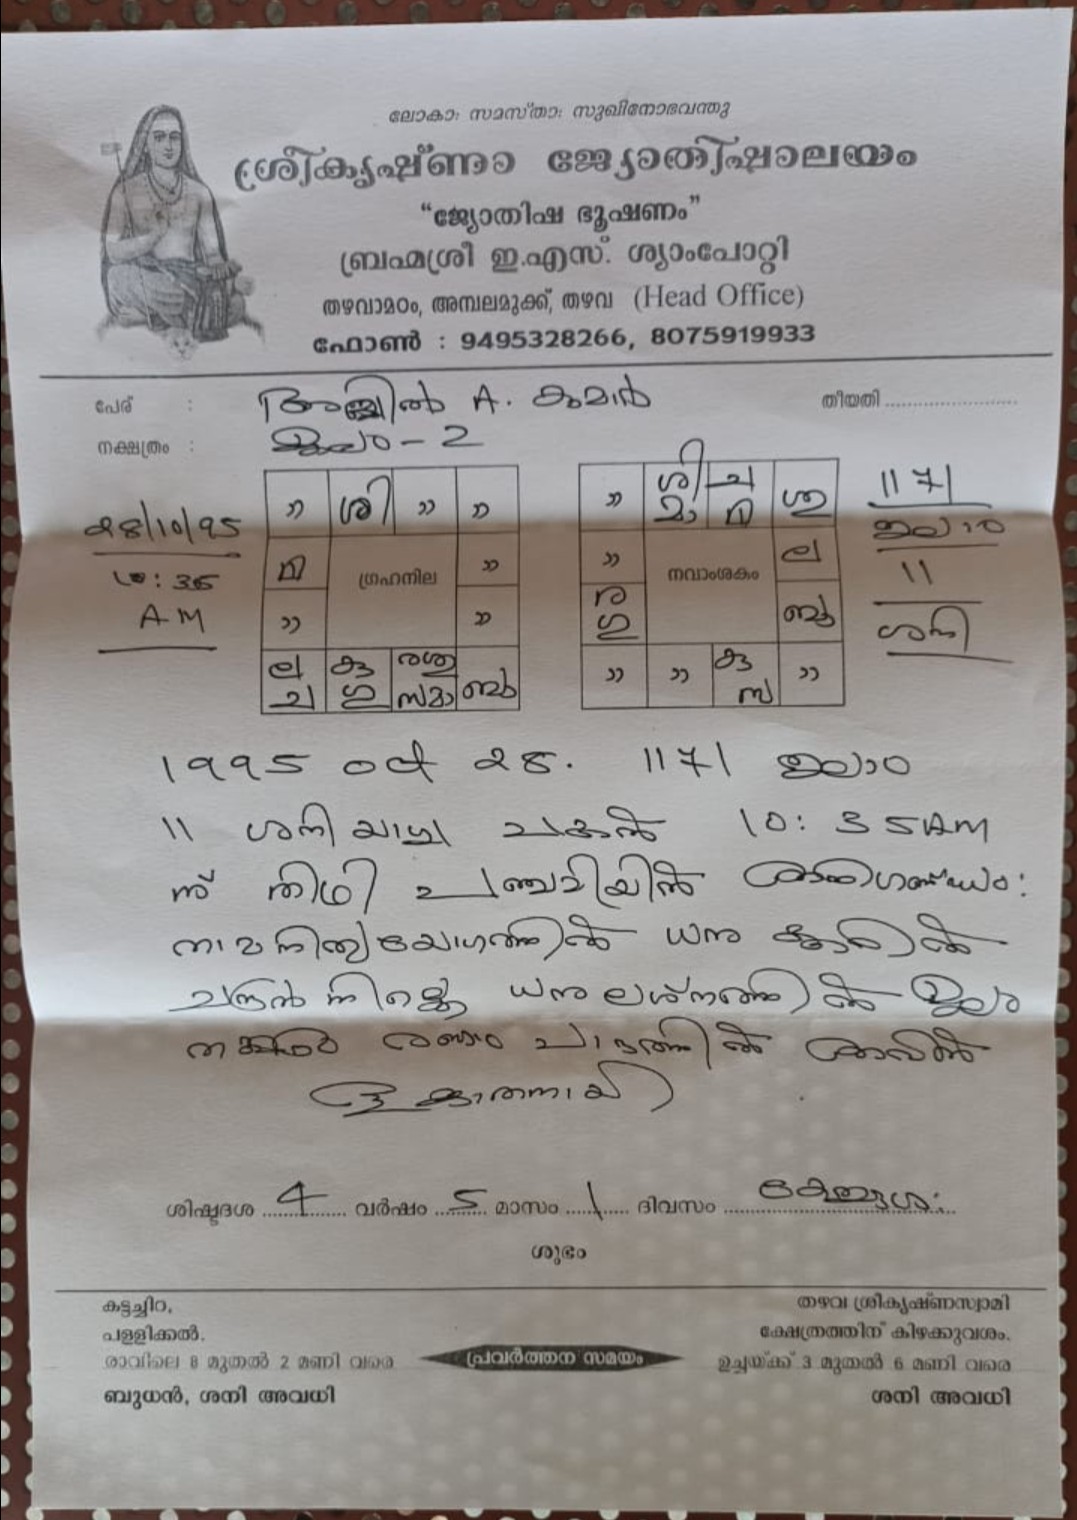 ലോകാഃ സമസ്താഃ സുഖിനോഭവന്തു
ശ്രീകൃഷ്ണാ ജ്യോതിഷാലയം
“ജ്യോതിഷ ഭൂഷണം”
ബ്രഹ്മശ്രീ ഇ.എസ്. ശ്യാംപോറ്റി
തഴവാമഠം, അമ്പലമുക്ക്, തഴവ (Head Office)
ഫോൺ : 9495328266, 8075919933
പേര് : A. കുമാർ
തീയതി
നക്ഷത്രം : മൂലം - 2
28/10/95
10:35
A.M
" ശി " "
മ "
ഗ്രഹനില
" "
ല ച കു ഗു രശു സമാ ബു
" ശി മാ ച മ ശു
" ല
നവാംശകം
ര ഗു ബു
" " കു സ "
1171
തുലാം
11
ശനി
1995 28. 1171 തുലാം
11 ശനിയാഴ്ച പകൽ 10:35AM
ന് തിഥി പഞ്ചമിയിൽ
ധനു
ധനു ലഗ്നത്തിൽ മൂലം
രണ്ടാം പാദത്തിൽ
ശിഷ്ടദശ 4 വർഷം 5 മാസം 1 ദിവസം
ശുഭം
കട്ടച്ചിറ,
പള്ളിക്കൽ.
രാവിലെ 8 മുതൽ 2 മണി വരെ
ബുധൻ, ശനി അവധി
പ്രവർത്തന സമയം
തഴവ ശ്രീകൃഷ്ണസ്വാമി
ക്ഷേത്രത്തിന് കിഴക്കുവശം.
ഉച്ചയ്ക്ക് 3 മുതൽ 6 മണി വരെ
ശനി അവധി